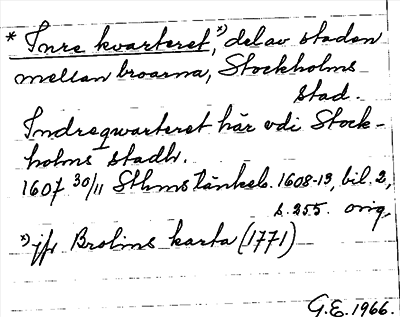 * Inre kvarteret,*) del av staden
mellan broarna, Stockholms
stad.
Indreqwarteret här vdi Stock-
holms stadh.
1607 30/11 Sthms tänkeb. 1608-13, bil. 2,
s. 255. orig.
*) jfr Brolins karta (1771)
G.E. 1966.